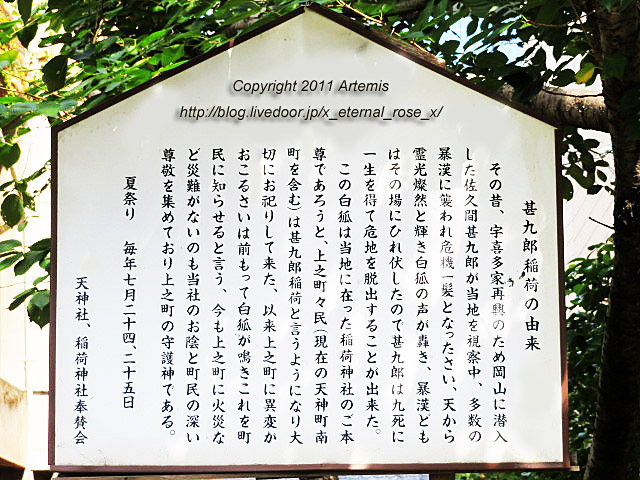 Copyright 2011 Artemis
http://blog.livedoor.jp/x_eternal_rose_x/
甚九郎稲荷の由来
その昔、宇喜多家再興のため岡山に潜入
した佐久間甚九郎が当地を視察中、多数の
暴漢に襲われ危機一髪となったさい、天から
霊光燦然と輝き白狐の声が轟き、暴漢ども
はその場にひれ伏したので甚九郎は九死に
一生を得て危地を脱出することが出来た。
この白狐は当地に在った稲荷神社のご本
尊であろうと、上之町々民(現在の天神町南
町を含む)は甚九郎稲荷と言うようになり大
切にお祀りして来た、以来上之町に異変が
おこるさいは前もって白狐が鳴きこれを町
民に知らせると言う、今も上之町に火災な
ど災難がないのも当社のお陰と町民の深い
尊敬を集めており上之町の守護神である。
夏祭り 毎年七月二十四、二十五日
天神社、稲荷神社奉賛会